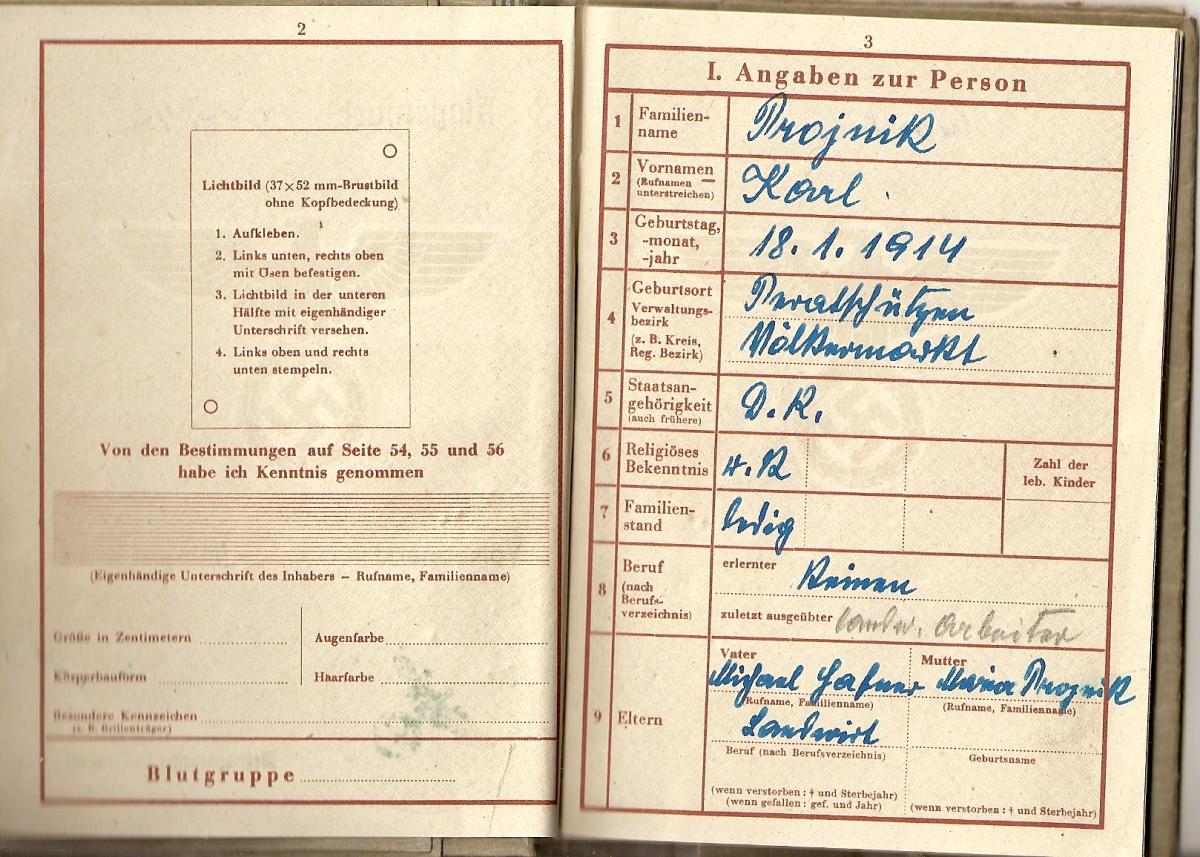 2
Lichtbild (37×52 mm-Brustbild
ohne Kopfbedeckung)
1. Aufkleben.
2. Links unten, rechts oben
mit Ösen befestigen.
3. Lichtbild in der unteren
Hälfte mit eigenhändiger
Unterschrift versehen.
4. Links oben und rechts
unten stempeln.
Von den Bestimmungen auf Seite 54, 55 und 56
habe ich Kenntnis genommen
(Eigenhändige Unterschrift des Inhabers – Rufname, Familienname)
Größe in Zentimetern
Augenfarbe
Körperbauform
Haarfarbe
Besondere Kennzeichen
(z. B. Brillenträger)
Blutgruppe
3
I. Angaben zur Person
1 Familien-
name
Projnik
2 Vornamen
(Rufnamen
unterstreichen)
Karl
3 Geburtstag,
-monat,
-jahr
18.1.1914
4 Geburtsort
Verwaltungs-
bezirk
(z. B. Kreis,
Reg. Bezirk)
Peratschützen
Völkermarkt
5 Staatsan-
gehörigkeit
(auch frühere)
D.R.
6 Religiöses
Bekenntnis
r.k
Zahl der
leb. Kinder
7 Familien-
stand
ledig
8 Beruf
(nach
Berufs-
verzeichnis)
erlernter Keinen
zuletzt ausgeübter landw. Arbeiter
9 Eltern
Vater
Michael Hafner
(Rufname, Familienname)
Landwirt
Beruf (nach Berufsverzeichnis)
(wenn verstorben: † und Sterbejahr)
(wenn gefallen: gef. und Jahr)
Mutter
Maria Projnik
(Rufname, Familienname)
Geburtsname
(wenn verstorben: † und Sterbejahr)